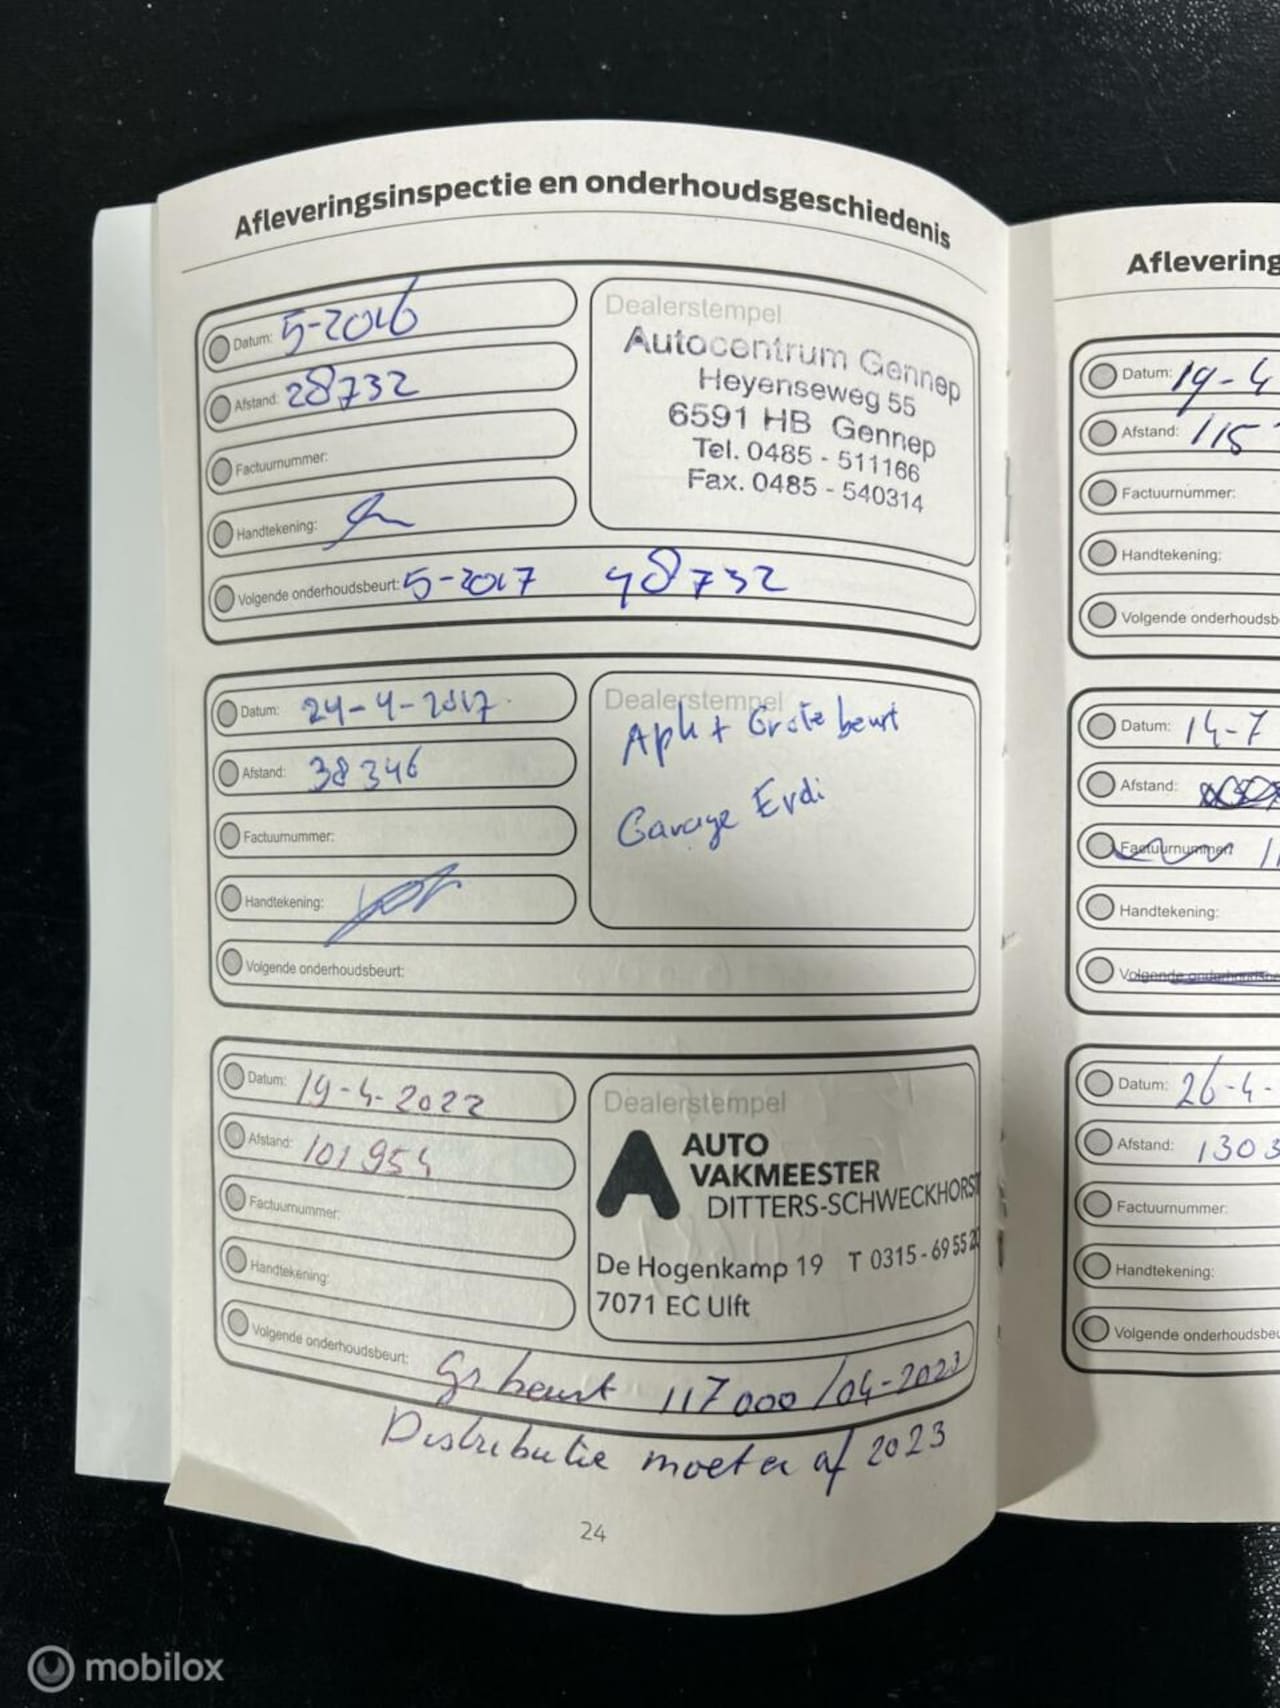 Afleveringsinspectie en onderhoudsgeschiedenis
Datum: 5-2016
Afstand: 28732
Factuurnummer:
Handtekening:
Volgende onderhoudsbeurt: 5-2017 48732
Dealerstempel
Autocentrum Gennep
Heyenseweg 55
6591 HB Gennep
Tel. 0485 - 511166
Fax. 0485 - 540314
Datum: 24-4-2017
Afstand: 38346
Factuurnummer:
Handtekening:
Volgende onderhoudsbeurt:
Dealerstempel
Apk + Grote beurt
Garage Erdi
Datum: 19-4-2022
Afstand: 101954
Factuurnummer:
Handtekening:
Volgende onderhoudsbeurt: Gr beurt 117000/04-2023
Distributie moet er af 2023
Dealerstempel
AUTO
VAKMEESTER
DITTERS-SCHWECKHORST
De Hogenkamp 19 T 0315-69 55 20
7071 EC Ulft
24
Aflevering
Datum: 19-4
Afstand: 115
Factuurnummer:
Handtekening:
Volgende onderhoudsb
Datum: 14-7
Afstand:
Factuurnummer: 11
Handtekening:
Volgende onderhoudsbe
Datum: 26-4-
Afstand: 1303
Factuurnummer:
Handtekening:
Volgende onderhoudsbeu
mobilox